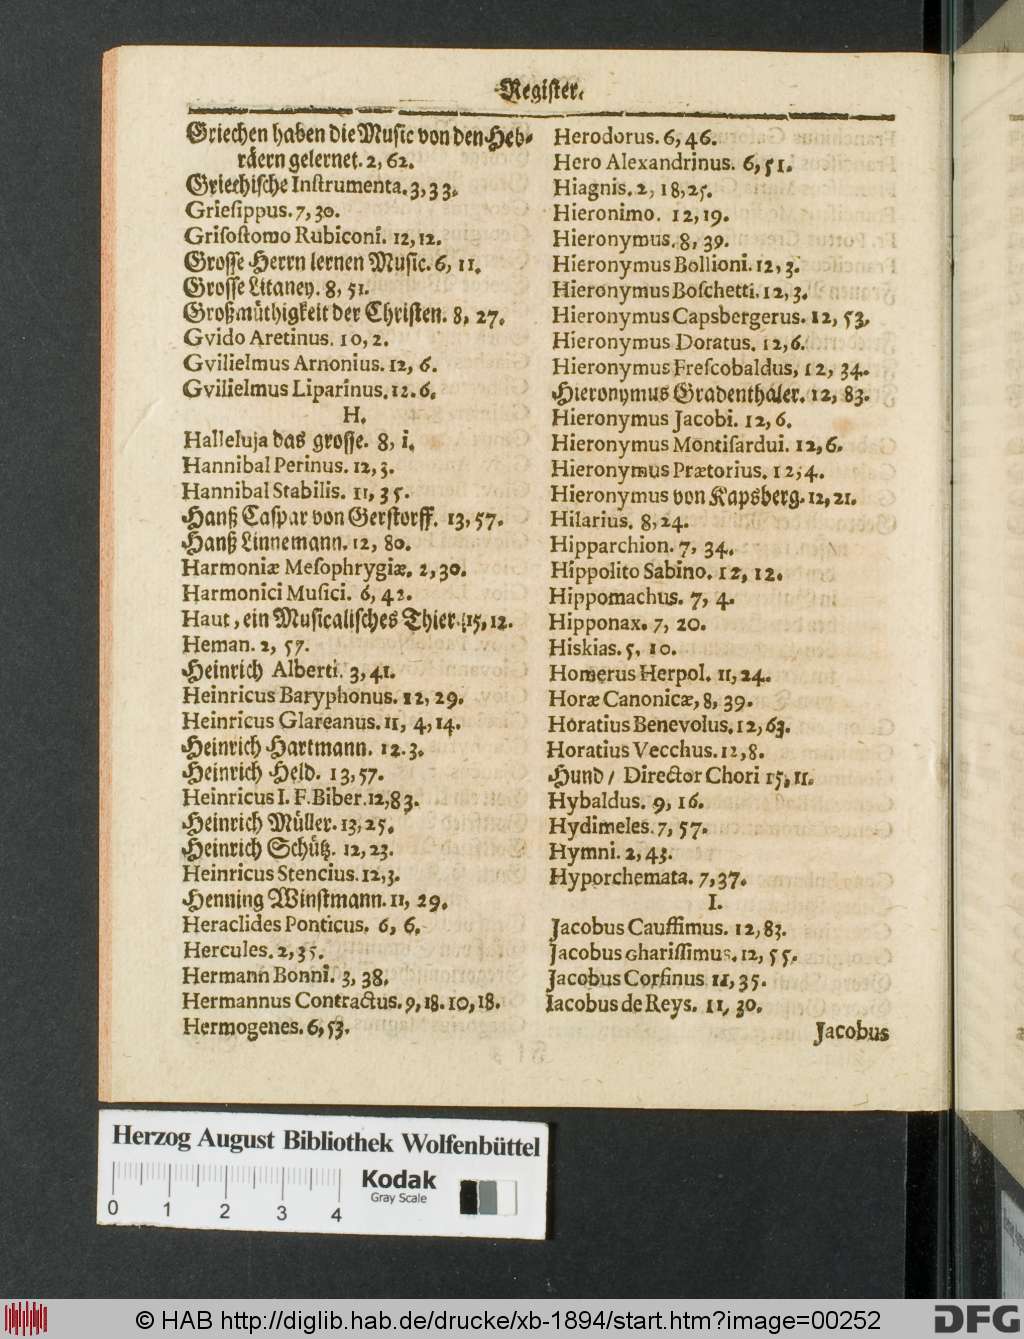 Register.
Griechen haben die Music von den Heb-
räern gelernet. 2, 62.
Griechische Instrumenta. 3, 33.
Griesippus. 7, 30.
Grisostomo Rubiconi. 12, 12.
Grosse Herrn lernen Music. 6, 11.
Grosse Litaney. 8, 51.
Großmüthigkeit der Christen. 8, 27.
Gvido Aretinus. 10, 2.
Gvilielmus Arnonius. 12, 6.
Gvilielmus Liparinus. 12. 6.
H.
Halleluja das grosse. 8, 1.
Hannibal Perinus. 12, 3.
Hannibal Stabilis. 11, 35.
Hanß Caspar von Gerstorff. 13, 57.
Hanß Linnemann. 12, 80.
Harmoniæ Mesophrygiæ. 2, 30.
Harmonici Musici. 6, 42.
Haut, ein Musicalisches Thier. 15, 12.
Heman. 2, 57.
Heinrich Alberti. 3, 41.
Heinricus Baryphonus. 12, 29.
Heinricus Glareanus. 11, 4, 14.
Heinrich Hartmann. 12. 3.
Heinrich Held. 13, 57.
Heinricus I. F. Biber. 12, 83.
Heinrich Müller. 13, 25.
Heinrich Schütz. 12, 23.
Heinricus Stencius. 12, 3.
Henning Winstmann. 11, 29.
Heraclides Ponticus. 6, 6.
Hercules. 2, 35.
Hermann Bonni. 3, 38.
Hermannus Contractus. 9, 18. 10, 18.
Hermogenes. 6, 53.
Herodorus. 6, 46.
Hero Alexandrinus. 6, 51.
Hiagnis. 2, 18, 25.
Hieronimo. 12, 19.
Hieronymus. 8, 39.
Hieronymus Bollioni. 12, 3.
Hieronymus Boschetti. 12, 3.
Hieronymus Capsbergerus. 12, 53.
Hieronymus Doratus. 12, 6.
Hieronymus Frescobaldus, 12, 34.
Hieronymus Gradenthaler. 12, 83.
Hieronymus Jacobi. 12, 6.
Hieronymus Montisardui. 12, 6.
Hieronymus Prætorius. 12, 4.
Hieronymus von Kapsberg. 12, 21.
Hilarius. 8, 24.
Hipparchion. 7, 34.
Hippolito Sabino. 12, 12.
Hippomachus. 7, 4.
Hipponax. 7, 20.
Hiskias. 5, 10.
Homerus Herpol. 11, 24.
Horæ Canonicæ, 8, 39.
Horatius Benevolus. 12, 63.
Horatius Vecchus. 12, 8.
Hund / Director Chori 15, 11.
Hybaldus. 9, 16.
Hydimeles. 7, 57.
Hymni. 2, 43.
Hyporchemata. 7, 37.
I.
Jacobus Cauffimus. 12, 83.
Jacobus Gharissimus. 12, 55.
Jacobus Corsinus 11, 35.
Iacobus de Reys. 11, 30.
Jacobus
Herzog August Bibliothek Wolfenbüttel
Kodak
Gray Scale
0 1 2 3 4
© HAB http://diglib.hab.de/drucke/xb-1894/start.htm?image=00252
DFG